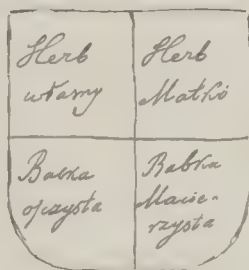 Herb
własny
Herb
Matki
Babka
ojczysta
Babka
Macie-
rzysta